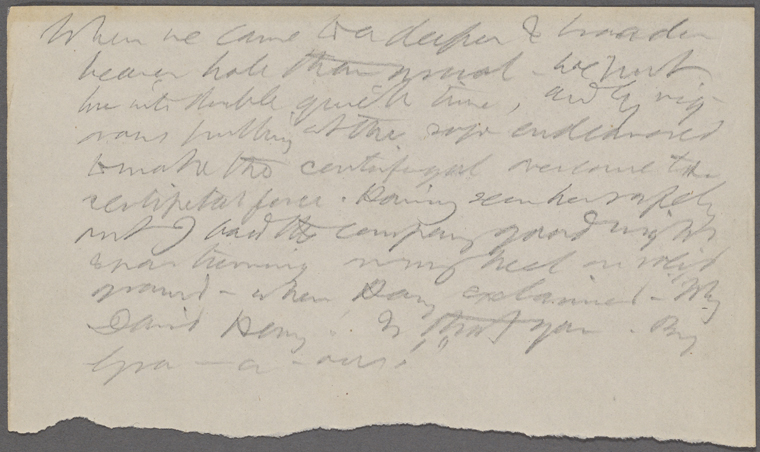 When we came to a deeper & broader
beaver hole than usual – we put
her into double quick time, and by vig-
orous pulling at the rope endeavored
to make the centrifugal overcome the
centripetal force. Having seen her safely
out I bad the company good night
upon turning my heel on solid
ground – when Harry exclaimed – "Why
David Henry. Is that you. By
Gra – a – ous!"